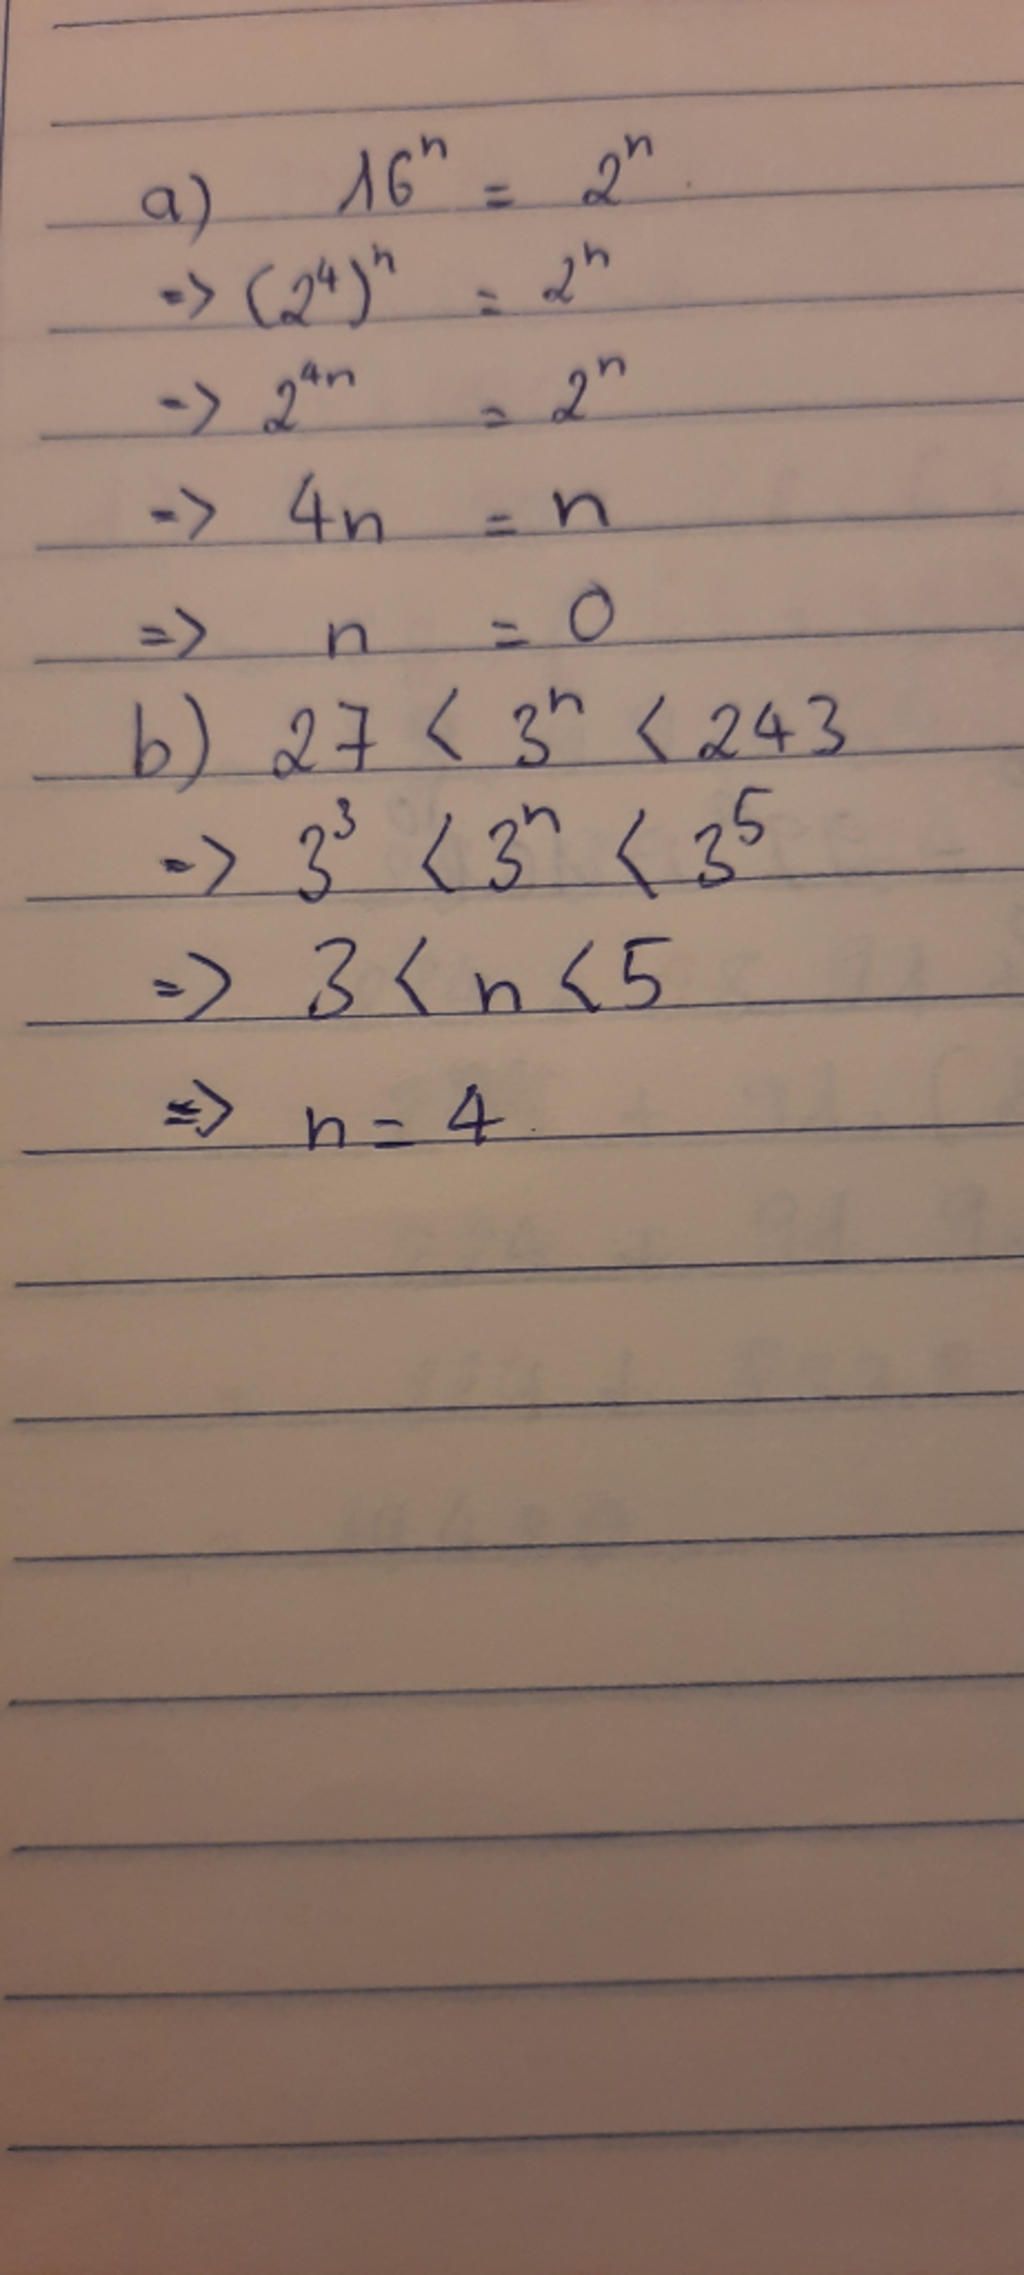 a) 16ⁿ = 2ⁿ
=> (2⁴)ⁿ = 2ⁿ
=> 2⁴ⁿ = 2ⁿ
=> 4n = n
=> n = 0
b) 27 < 3ⁿ < 243
=> 3³ < 3ⁿ < 3⁵
=> 3 < n < 5
=> n = 4